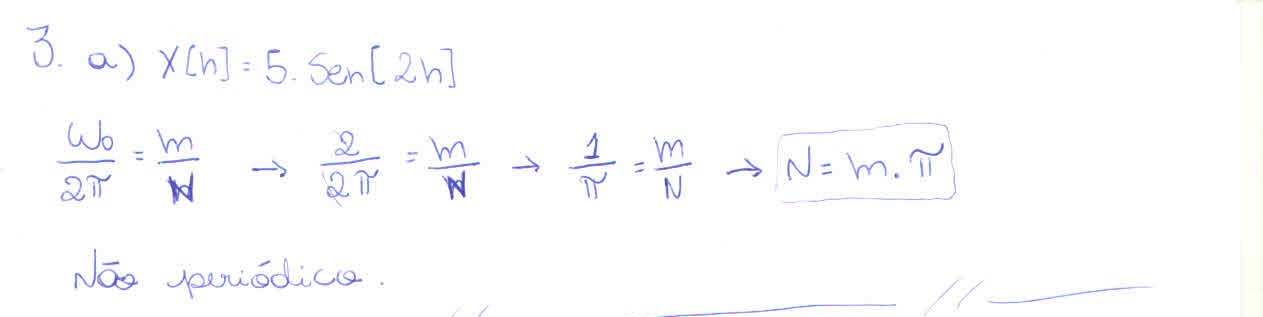 3. a) X[n] = 5. Sen[2n]
ω₀/2π = m/N → 2/2π = m/N → 1/π = m/N → N = m. π
Não periódica.